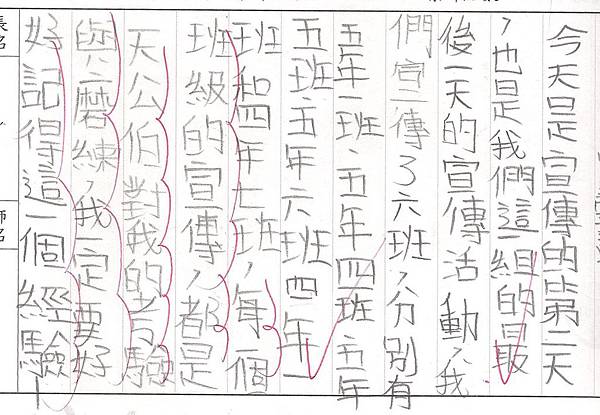 今天是宣傳的第二天
，也是我們這一組的最
後一天的宣傳活動，我
們宣傳了六班，分別有
五年一班、五年四班、五年
五班、五年六班、四年一
班和四年七班，每一個
班級的宣傳，都是
天公伯對我的考驗
與磨練，我一定要好
好記得這一個經驗！